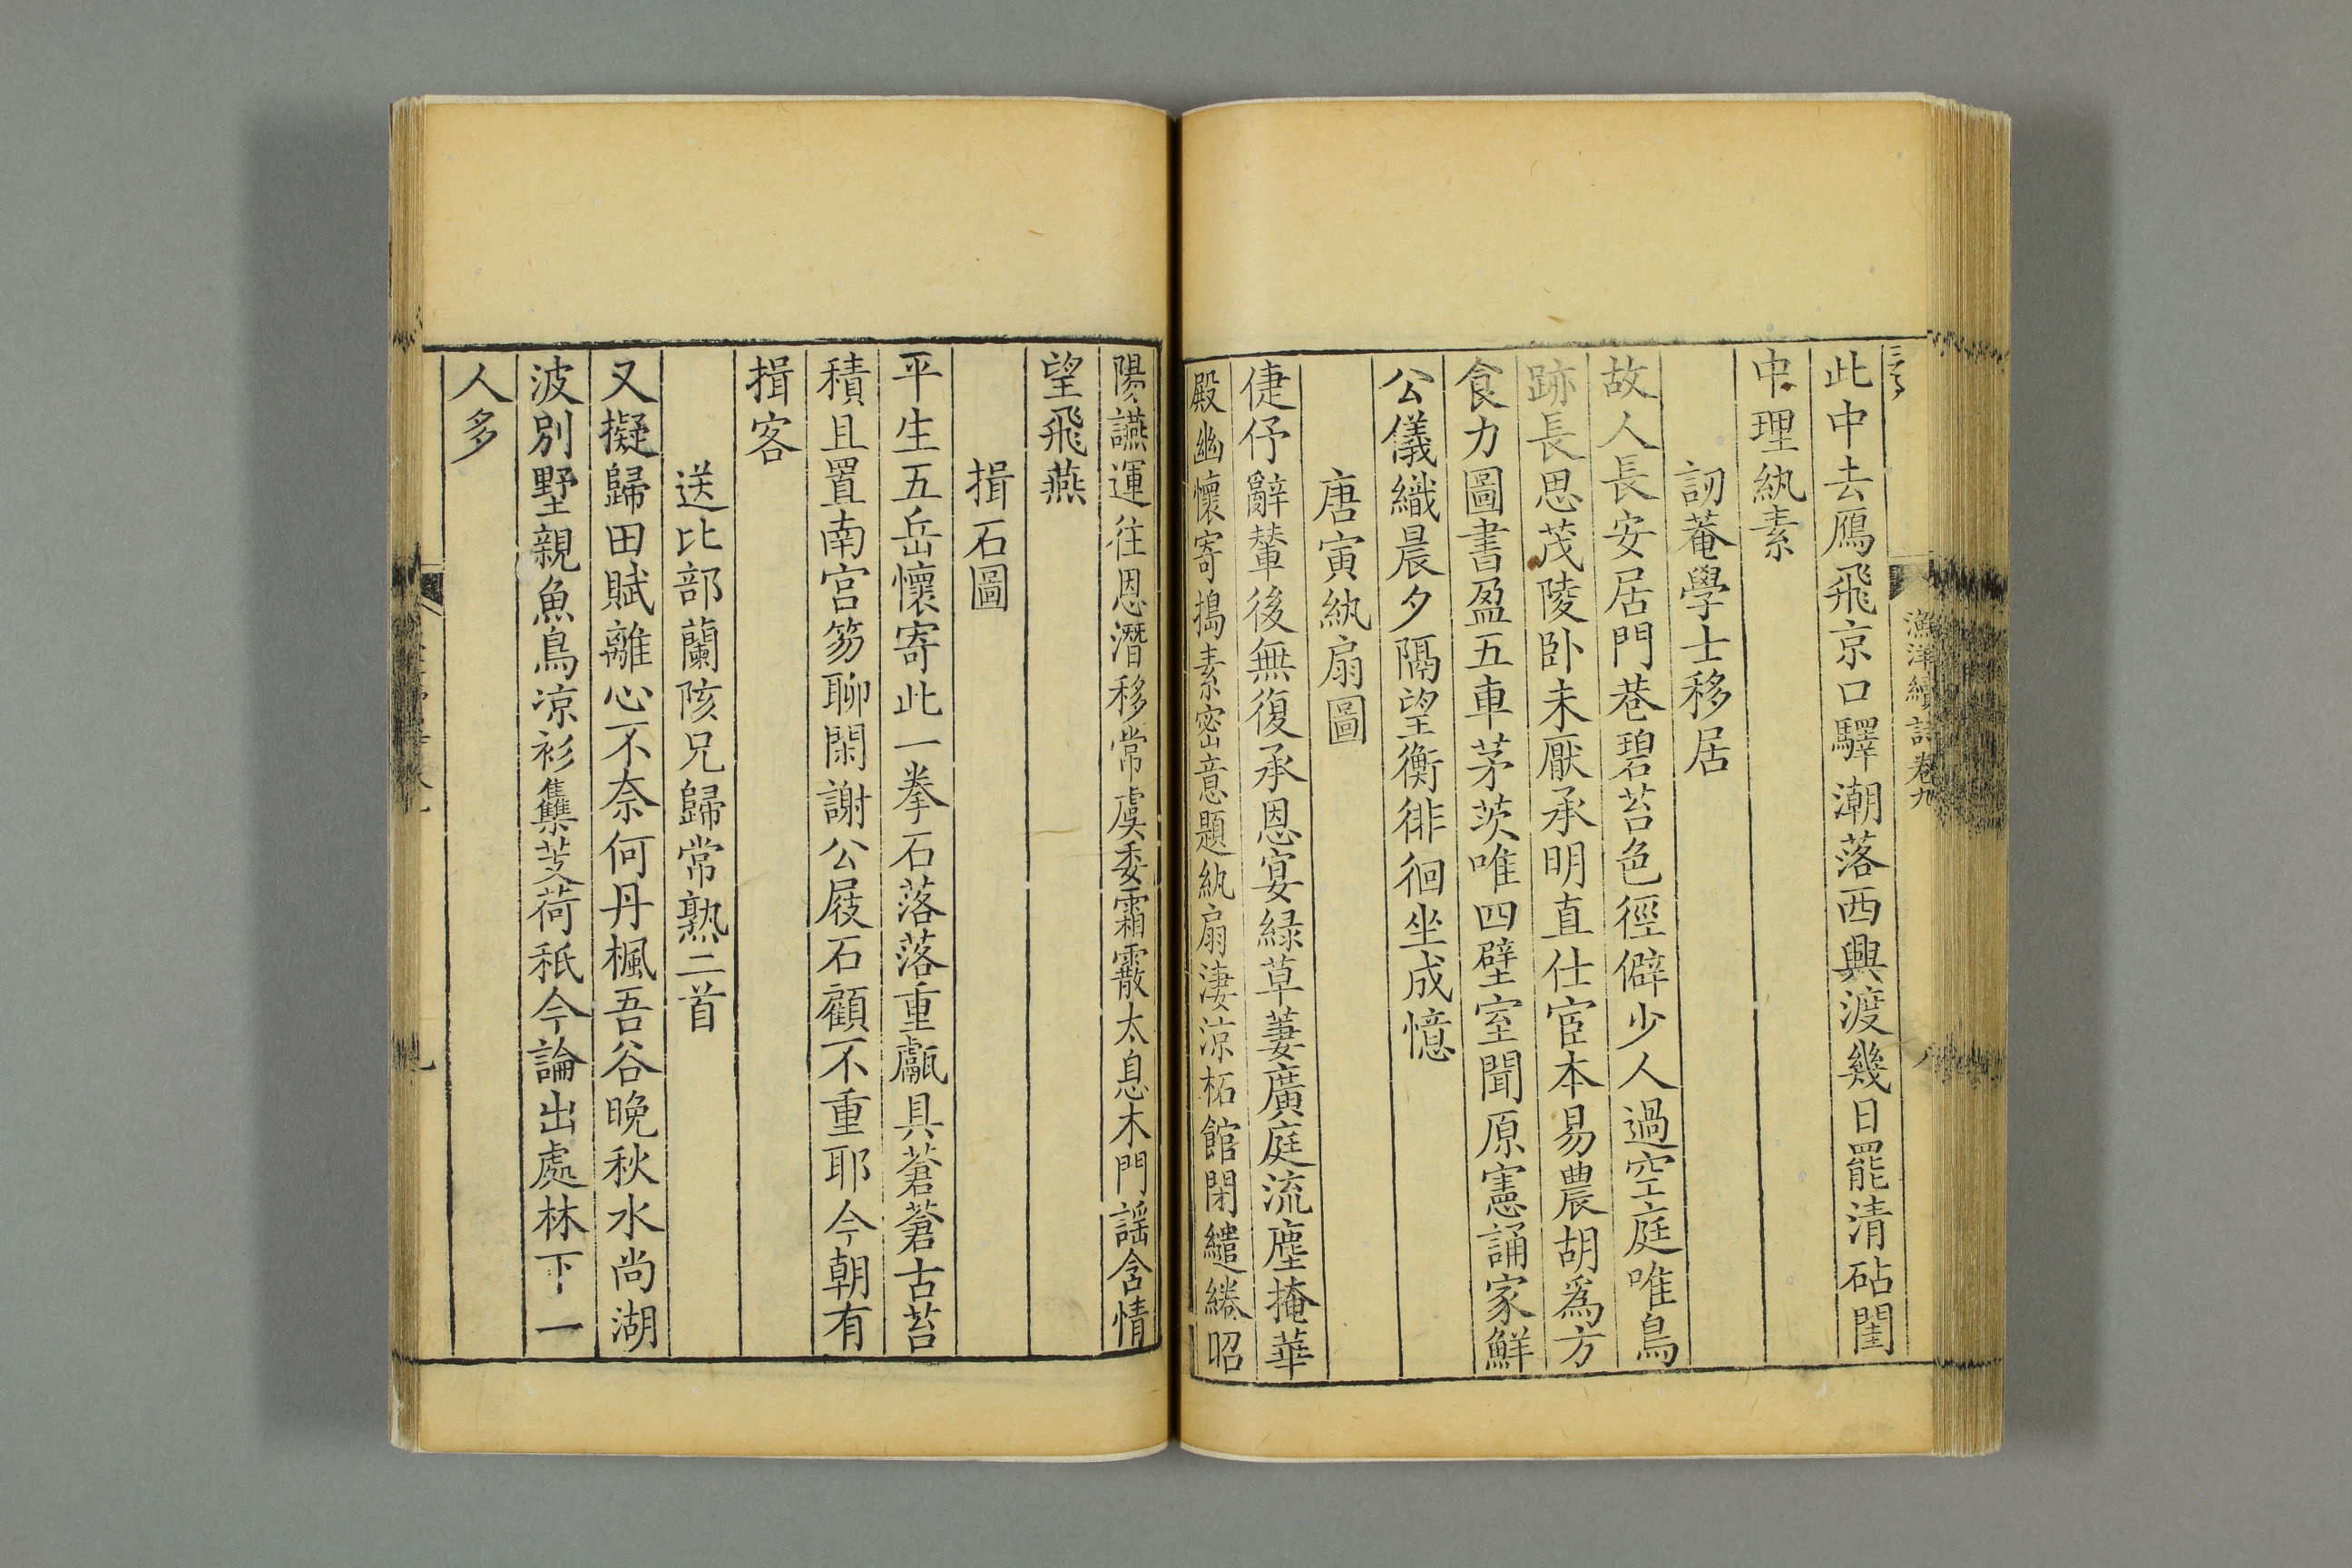 漁洋續詩卷九
此中去鴈飛京口驛潮落西興渡幾日罷清砧閨
中理紈素
訒菴學士移居
故人長安居門巷碧苔色徑僻少人過空庭唯鳥
跡長思茂陵卧未厭承明直仕宦本易農胡爲方
食力圖書盈五車茅茨唯四壁室聞原憲誦家鮮
公儀織晨夕隔望衡徘徊坐成憶
唐寅紈扇圖
倢伃辭輦後無復承恩宴緑草萋廣庭流塵掩華
殿幽懷寄搗素密意題紈扇淒涼柘館閉繾綣昭
陽讌運往恩潛移常虞委霜霰太息木門謡含情
望飛燕
揖石圖
平生五岳懷寄此一拳石落落重甗具蒼蒼古苔
積且置南宫笏聊閑謝公屐石顧不重耶今朝有
揖客
送比部蘭陔兄歸常熟二首
又擬歸田賦離心不奈何丹楓吾谷晚秋水尚湖
波別墅親魚鳥凉衫集芰荷秖今論出處林下一
人多